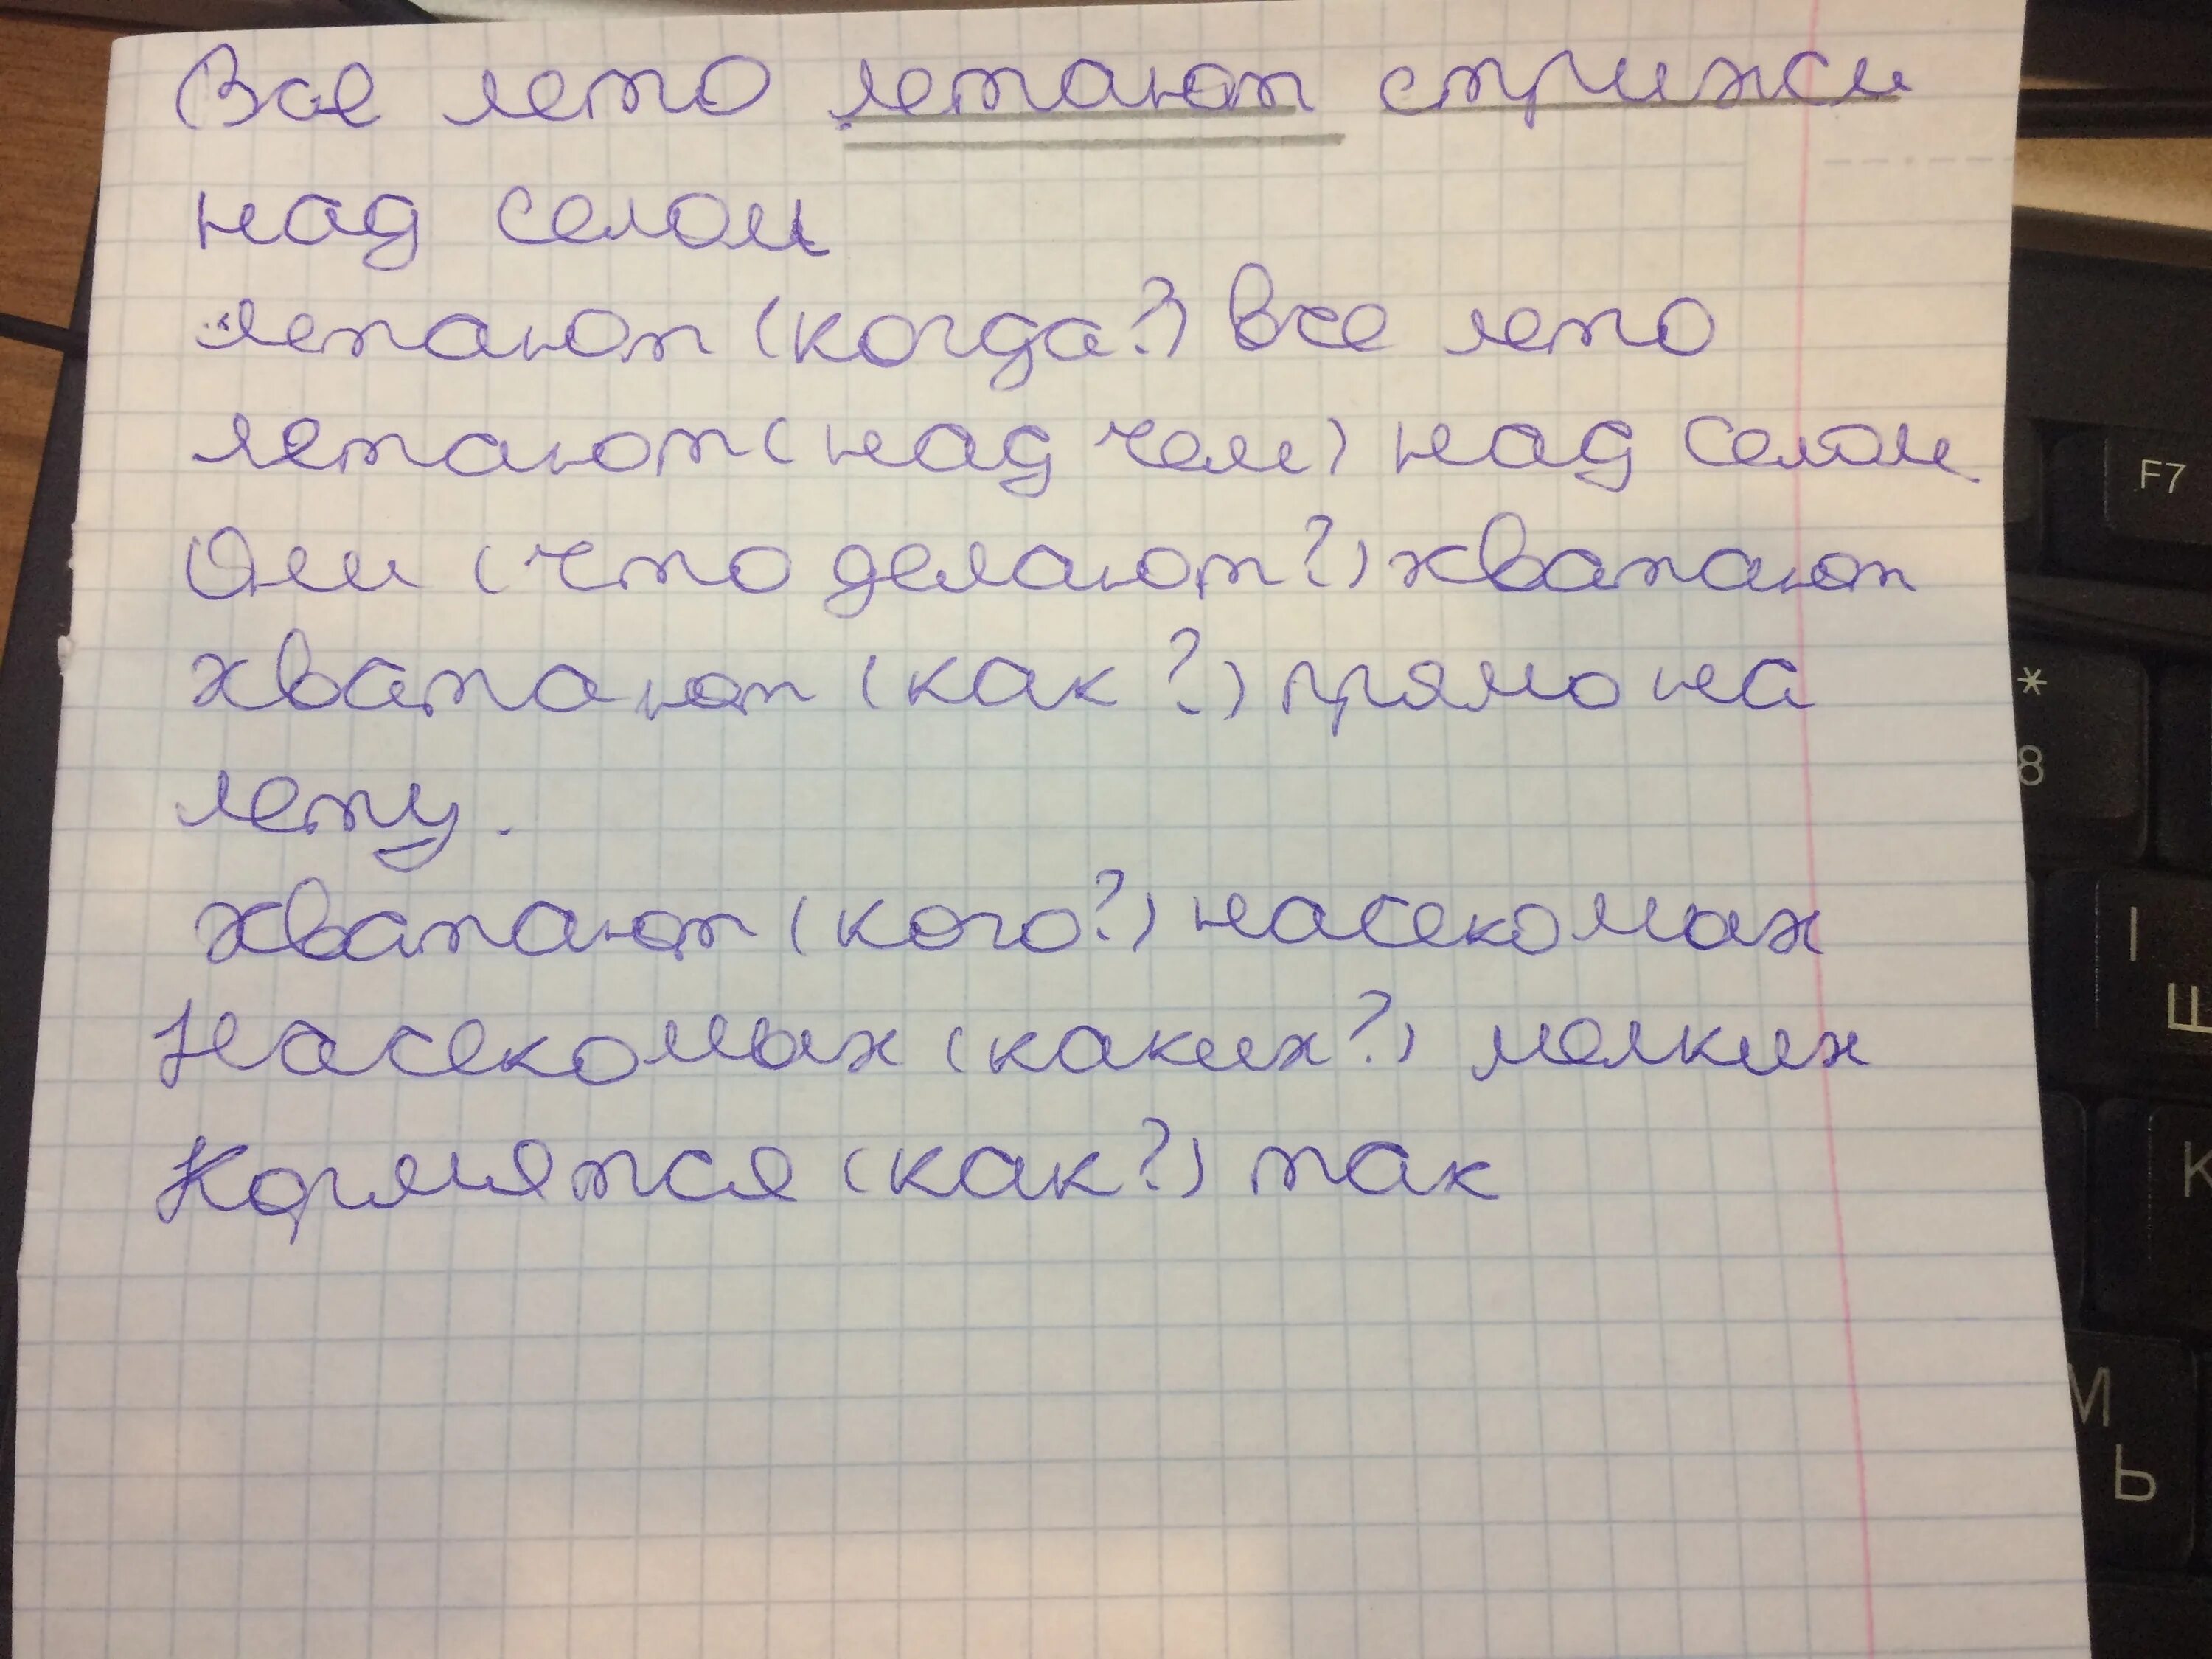 Все лето летают стрижи
над селом
летают (когда?) все лето
летают (над чем) над селом.
Они (что делают?) хватают
хватают (как?) прямо на
лету.
хватают (кого?) насекомых
Насекомых (каких?) мелких
Кормятся (как?) так
F7
*
8
I
Ш
К
М
Ь